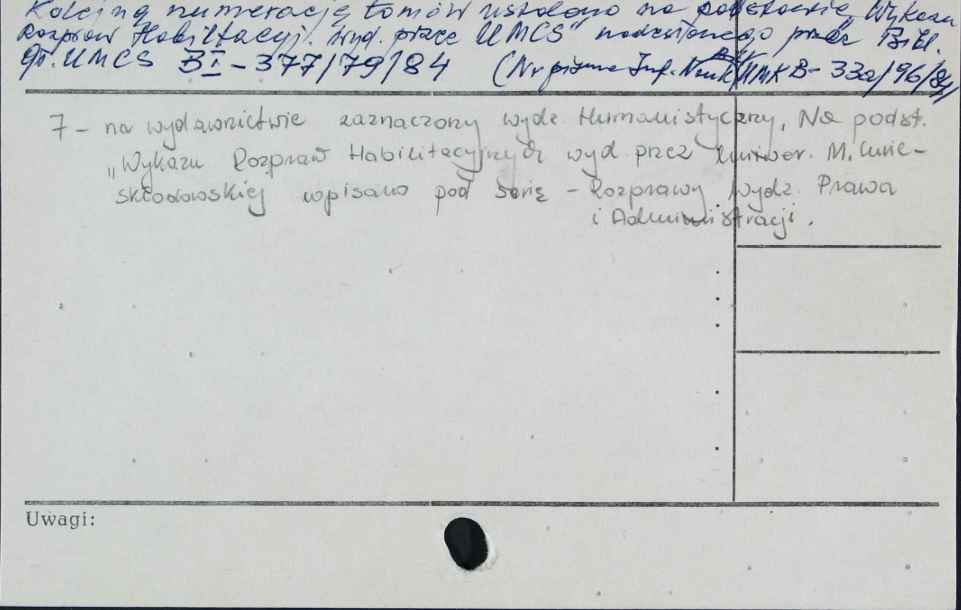 Kolejną numerację tomów ustalono na podstawie „Wykazu
Rozpraw Habilitacyj. wyd. przez UMCS" nadesłanego przez Bibl.
Gł. UMCS BI-377/79/84 (Nr pisma Inf. Nauk. UMK B-33a/96/84)
7 - na wydawnictwie zaznaczony wydz. Humanistyczny, Na podst.
„Wykazu Rozpraw Habilitacyjnych wyd. przez Uniwer. M. Curie-
Skłodowskiej wpisano pod serię - Rozprawy Wydz. Prawa
i Administracji.
Uwagi: